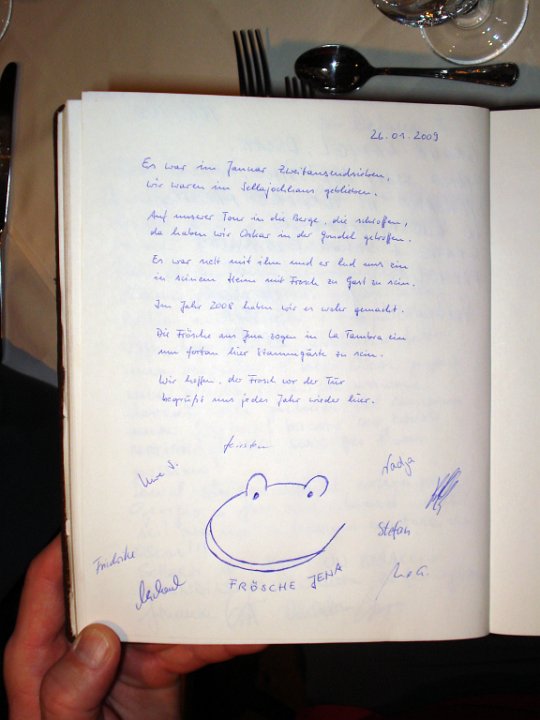 26.01.2009
Es war im Januar Zweitausendsieben,
wir waren im Sellajochhaus geblieben.
Auf unserer Tour in die Berge, die schroffen,
da haben wir Oskar in der Gondel getroffen.
Es war nett mit ihm und er lud uns ein
in seinem Heim mit Frosch zu Gast zu sein.
Im Jahr 2008 haben wir es wahr gemacht.
Die Frösche aus Jena zogen in La Tambra ein
um fortan hier Stammgäste zu sein.
Wir hoffen, der Frosch vor der Tür
begrüßt uns jedes Jahr wieder hier.
Uwe S.
Nadja
Stefan
Friederike
FRÖSCHE JENA